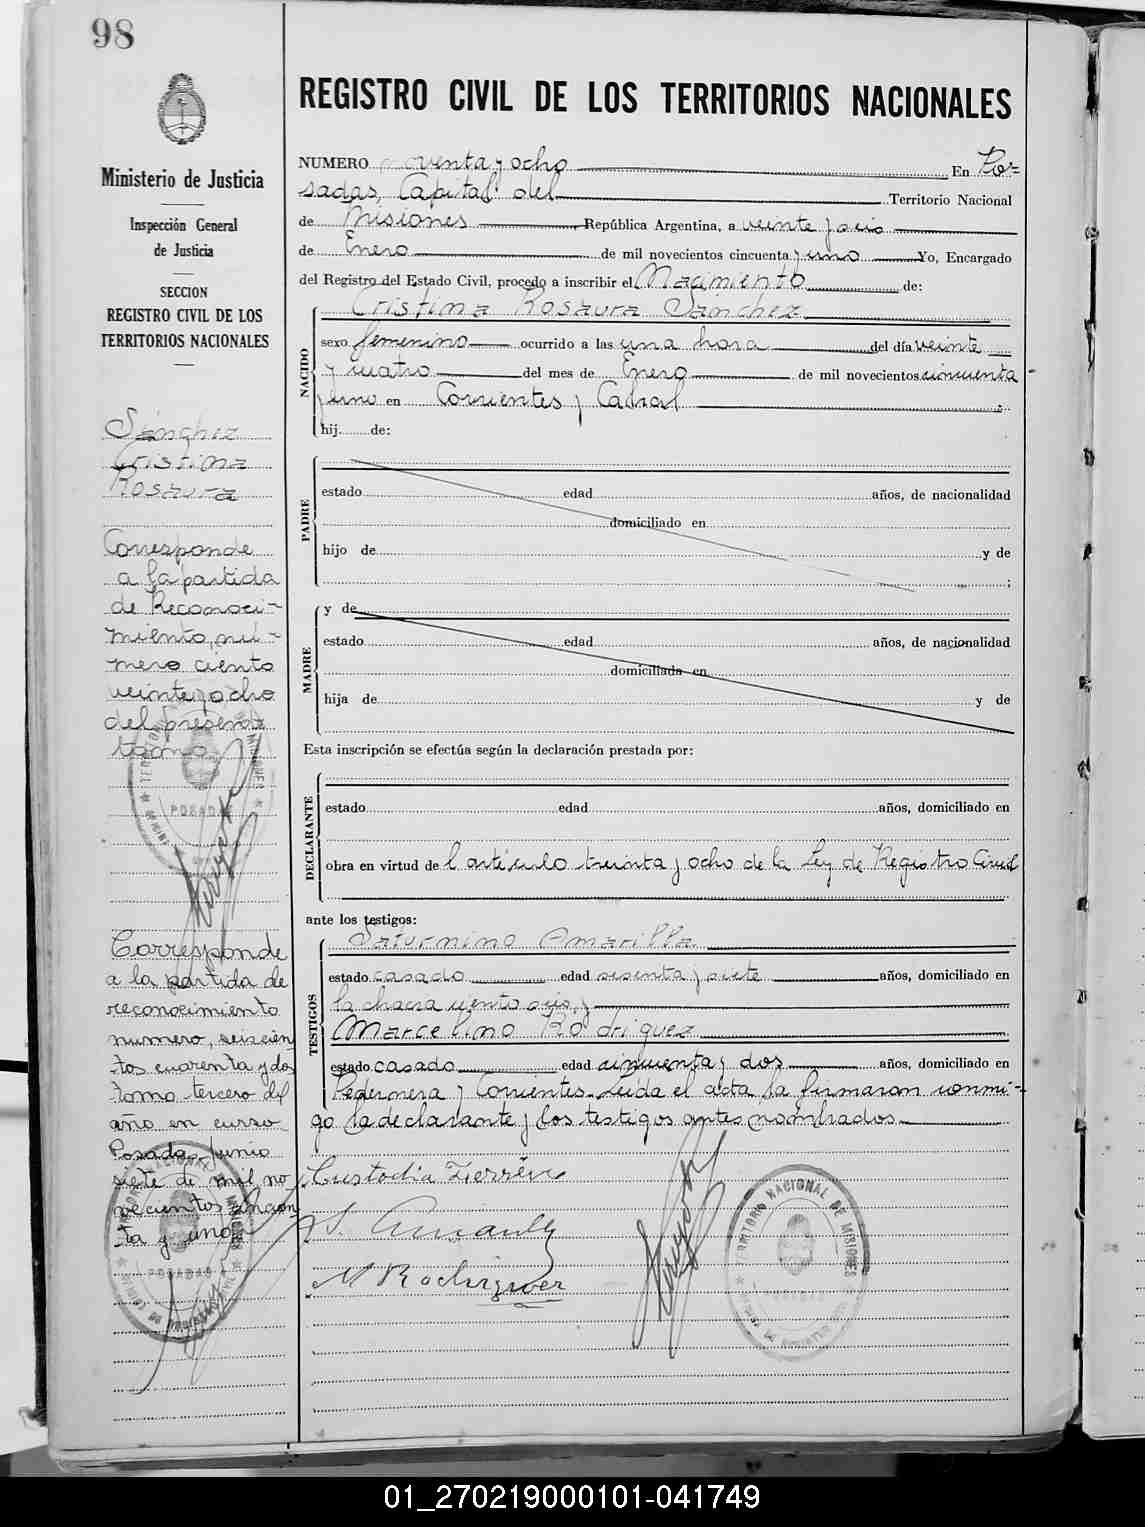 98
Ministerio de Justicia
Inspección General
de Justicia
SECCION
REGISTRO CIVIL DE LOS
TERRITORIOS NACIONALES
Sánchez
Cristina
Rosaura
Corresponde
a la partida
de Reconoci-
miento, nú-
mero ciento
veinte y ocho
del presente
tomo
Corresponde
a la partida de
reconocimiento
numero, seiscien
tos cuarenta y dos
tomo tercero del
año en curso
Posadas, Junio
siete de mil no
vecientos cincuen
ta y uno
REGISTRO CIVIL DE LOS TERRITORIOS NACIONALES
NUMERO noventa y ocho En Po-
sadas, Capital del Territorio Nacional
de Misiones República Argentina, a veinte y seis
de Enero de mil novecientos cincuenta y uno Yo, Encargado
del Registro del Estado Civil, procedo a inscribir el Nacimiento de:
Cristina Rosaura Sánchez
NACIDO
sexo femenino ocurrido a las una hora del día veinte
y cuatro del mes de Enero de mil novecientos cincuenta
y uno en Corrientes y Cabral ;
hij de:
PADRE
estado edad años, de nacionalidad
domiciliado en
hijo de y de
;
MADRE
y de
estado edad años, de nacionalidad
domiciliada en
hija de y de
Esta inscripción se efectúa según la declaración prestada por:
DECLARANTE
estado edad años, domiciliado en
obra en virtud de l artículo treinta y ocho de la Ley de Registro Civil
ante los testigos:
TESTIGOS
Saturnino Amarilla
estado casado edad sesenta y siete años, domiciliado en
la chacra ciento seis, y
Marcelino Rodriguez
estado casado edad cincuenta y dos años, domiciliado en
Pedernera y Corrientes. Leida el acta la firmaron conmi-
go la declarante y los testigos antes nombrados
Custodia
S. Amarilla
M Rodriguez
TERRITORIO NACIONAL DE MISIONES
POSADAS
01_270219000101-041749